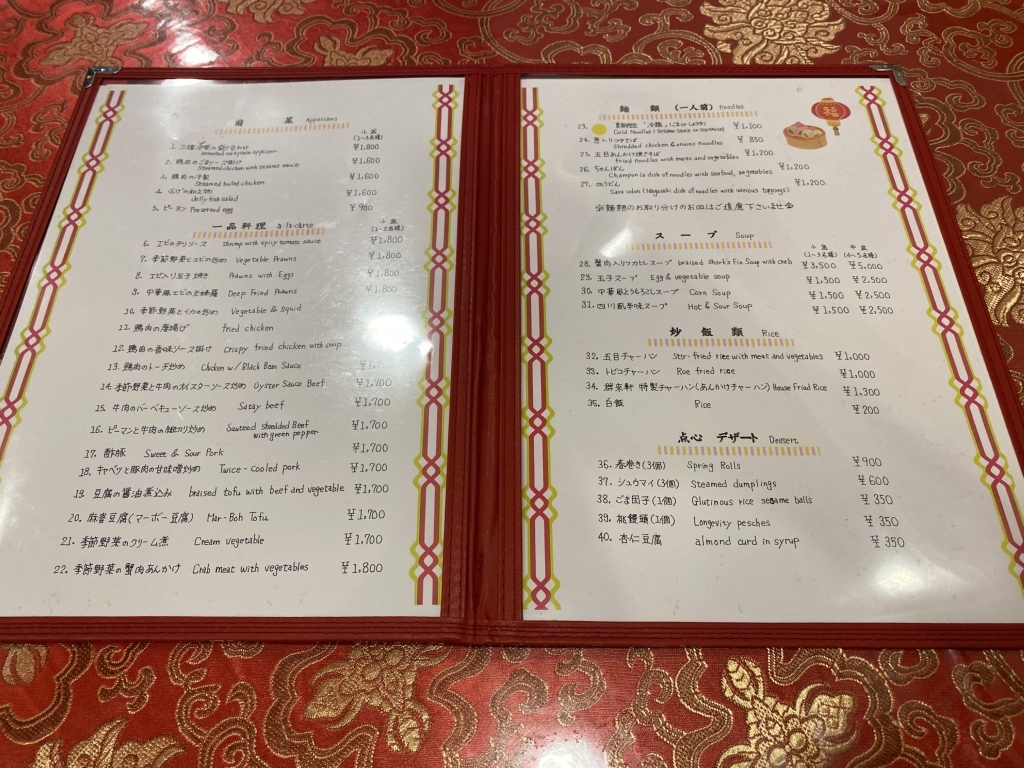 前 菜 Appetizers
小盆
(1〜3名様)
1. 三種冷菜の盛り合わせ ¥1,800
Assorted cold plate appetizer
2. 鶏肉のごまソース掛け ¥1,600
Steamed chicken with sesame sauce
3. 鶏肉の冷製 ¥1,600
Steamed boiled chicken
4. くらげの和え物 ¥1,600
Jelly fish salad
5. ピータン Preserved egg ¥900
一品料理 a-la-carte
小盆
(1〜2名様)
6. エビのチリソース shrimp with spicy tomato sauce ¥1,800
7. 季節野菜とエビの炒め Vegetable Prawns ¥1,800
8. エビ入り玉子焼き Prawns with Eggs ¥1,800
9. 中華風エビの天婦羅 Deep Fried Prawns ¥1,800
10. 季節野菜とイカの炒め Vegetable & squid ¥1,800
11. 鶏肉の唐揚げ fried chicken
12. 鶏肉の香味ソース掛け Crispy fried chicken with soup
13. 鶏肉のトーチ炒め Chicken w/Black Bean Sauce
14. 季節野菜と牛肉のオイスターソース炒め Oyster Sauce Beef ¥1,700
15. 牛肉のバーベキューソース炒め Satay beef ¥1,700
16. ピーマンと牛肉の細切り炒め Sauteed shredded Beef ¥1,700
with green pepper
17. 酢豚 Sweet & Sour Pork ¥1,700
18. キャベツと豚肉の甘味噌炒め Twice-cooked pork ¥1,700
19. 豆腐の醤油煮込み braised tofu with beef and vegetable ¥1,700
20. 麻婆豆腐(マーボー豆腐) Mar-Boh Tofu ¥1,700
21. 季節野菜のクリーム煮 Cream vegetable ¥1,700
22. 季節野菜の蟹肉あんかけ Crab meat with vegetables ¥1,800
麺 類 (一人前) noodles
23. 夏期限定 「冷麺」(ごまorしょうゆ) ¥1,100
Cold Noodles (Sesame Sauce or Soysauce)
24. 葱入りつゆそば ¥850
Shredded chicken & onions noodles
25. 五目あんかけ焼きそば ¥1,200
Fried noodles with meats and vegetables
26. ちゃんぽん ¥1,200
Champon (a dish of noodles with seafood, vegetables
27. 皿うどん ¥1,200
Sara udon (Nagasaki dish of noodles with various toppings)
※麺類のお取り分けのお皿はご遠慮下さいませ
スープ Soup
小盆 中盆
(1〜3名様) (4〜5名様)
28. 蟹肉入りフカヒレスープ braised Shark's Fin Soup with crab ¥3,500 ¥5,000
29. 玉子スープ Egg & vegetable soup ¥1,500 ¥2,500
30. 中華風とうもろこしスープ Corn Soup ¥1,500 ¥2,500
31. 四川風辛味スープ Hot & Sour Soup ¥1,500 ¥2,500
炒 飯 類 Rice
32. 五目チャーハン Stir-fried rice with meat and vegetables ¥1,000
33. トビコチャーハン Roe fried rice ¥1,000
34. 特製チャーハン(あんかけチャーハン) House Fried Rice ¥1,300
35. 白飯 Rice ¥200
点心 デザート Dessert
36. 春巻き(3個) Spring Rolls ¥900
37. シュウマイ(3個) Steamed dumplings ¥600
38. ごま団子(1個) Glutinous rice sesame balls ¥350
39. 桃饅頭(1個) Longevity pesches ¥350
40. 杏仁豆腐 almond curd in syrup ¥350